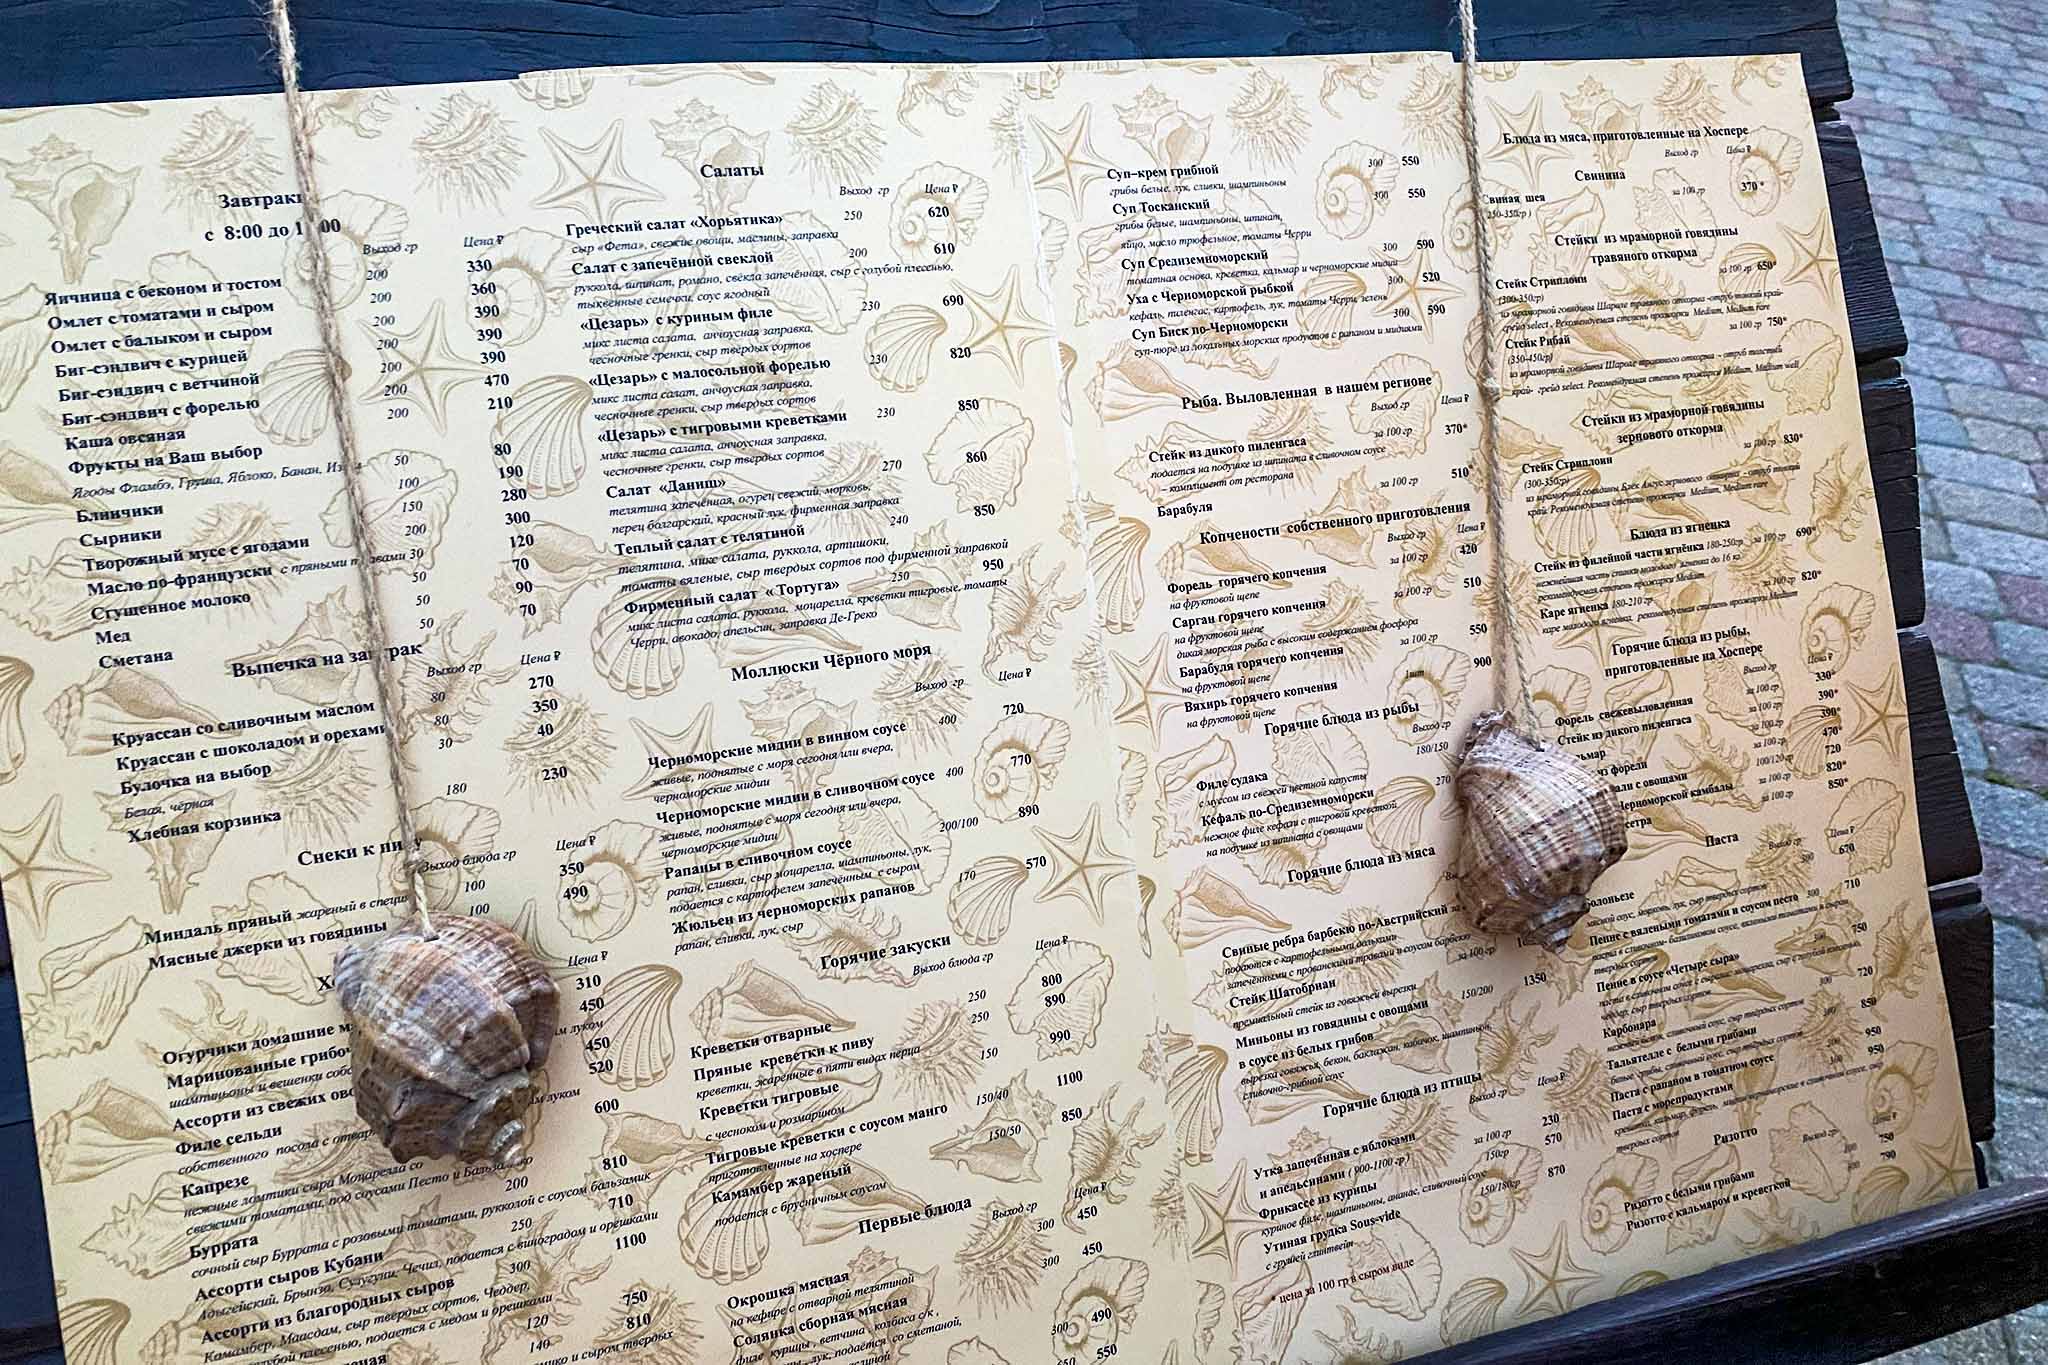 Завтраки
с 8:00 до 1 00
Выход гр Цена ₽
Яичница с беконом и тостом 200 330
Омлет с томатами и сыром 200 360
Омлет с балыком и сыром 200 390
Биг-сэндвич с курицей 200 390
Биг-сэндвич с ветчиной 200 390
Биг-сэндвич с форелью 200 470
Каша овсяная 200 210
Фрукты на Ваш выбор
Ягоды Фламбэ, Груша, Яблоко, Банан, 50 80
Блинчики 100 190
Сырники 150 280
Творожный мусс с ягодами 200 300
Масло по-французски с пряными 30 120
Сгущенное молоко 50 70
Мед 50 90
Сметана 50 70
Выпечка на завтрак
Выход гр Цена ₽
Круассан со сливочным маслом 80 270
Круассан с шоколадом и орехами 80 350
Булочка на выбор 30 40
Белая, чёрная
Хлебная корзинка 180 230
Снеки к пиву
Выход блюда гр Цена ₽
Миндаль пряный жареный в 100 350
Мясные джерки из говядины 100 490
Цена ₽
Огурчики домашние 310
Маринованные 450
шампиньоны и вешенки луком
Ассорти из свежих 450
Филе сельди 520
собственного посола с луком
Капрезе 600
нежные ломтики сыра Моцарелла со
свежими томатами, под соусами Песто и Бальзамико
Буррата 200 810
сочный сыр Буррата с розовыми томатами, рукколой с соусом бальзамик
Ассорти сыров Кубани 250 710
Адыгейский, Брынза, Сулугуни, Чечил, подается с виноградом и орешками
Ассорти из благородных сыров 300 1100
Камамбер, Маасдам, сыр твердых сортов, Чеддер,
голубой плесенью, подается с медом и орешками
120 750
140 810
и сыром твердых
Салаты
Выход гр Цена ₽
Греческий салат «Хорьятика» 250 620
сыр «Фета», свежие овощи, маслины, заправка
Салат с запечённой свеклой 200 610
руккола, шпинат, романо, свёкла запечённая, сыр с голубой плесенью,
тыквенные семечки, соус ягодный
«Цезарь» с куриным филе 230 690
микс листа салата, анчоусная заправка,
чесночные гренки, сыр твёрдых сортов
«Цезарь» с малосольной форелью 230 820
микс листа салат, анчоусная заправка,
чесночные гренки, сыр твердых сортов
«Цезарь» с тигровыми креветками 230 850
микс листа салата, анчоусная заправка,
чесночные гренки, сыр твердых сортов
Салат «Даниш» 270 860
телятина запечённая, огурец свежий, морковь,
перец болгарский, красный лук, фирменная заправка
Теплый салат с телятиной 240 850
телятина, микс салата, руккола, артишоки,
томаты вяленые, сыр твердых сортов под фирменной заправкой
Фирменный салат « Тортуга» 250 950
микс листа салата, руккола, моцарелла, креветки тигровые, томаты
Черри, авокадо, апельсин, заправка Де-Греко
Моллюски Чёрного моря
Выход гр Цена ₽
Черноморские мидии в винном соусе 400 720
живые, поднятые с моря сегодня или вчера,
черноморские мидии
Черноморские мидии в сливочном соусе 400 770
живые, поднятые с моря сегодня или вчера,
черноморские мидии
Рапаны в сливочном соусе 200/100 890
рапан, сливки, сыр моцарелла, шампиньоны, лук,
подается с картофелем запечённым с сыром
Жюльен из черноморских рапанов 170 570
рапан, сливки, лук, сыр
Горячие закуски
Выход блюда гр Цена ₽
Креветки отварные 250 800
Пряные креветки к пиву 250 890
креветки, жаренные в пяти видах перца
Креветки тигровые 150 990
с чесноком и розмарином
Тигровые креветки с соусом манго 150/40 1100
приготовленные на хоспере
Камамбер жареный 150/50 850
подается с брусничным соусом
Первые блюда
Выход гр Цена ₽
Окрошка мясная 300 450
на кефире с отварной телятиной
Солянка сборная мясная 300 450
филе курицы, ветчина, колбаса с/к,
лук, подаётся со сметаной,
300 490
550
Суп-крем грибной 300 550
грибы белые, лук, сливки, шампиньоны
Суп Тосканский 300 550
грибы белые, шампиньоны, шпинат,
яйцо, масло трюфельное, томаты Черри
Суп Средиземноморский 300 590
томатная основа, креветка, кальмар и черноморские мидии
Уха с Черноморской рыбкой 300 520
кефаль, пиленгас, картофель, лук, томаты Черри, зелень
Суп Биск по-Черноморски 300 590
суп-пюре из локальных морских продуктов с рапаном и мидиями
Рыба. Выловленная в нашем регионе
Выход гр Цена ₽
Стейк из дикого пиленгаса за 100 гр 370*
подается на подушке из шпината в сливочном соусе
– комплимент от ресторана
Барабуля за 100 гр 510*
Копчености собственного приготовления
Выход гр Цена ₽
Форель горячего копчения за 100 гр 420
на фруктовой щепе
Сарган горячего копчения за 100 гр 510
на фруктовой щепе
дикая морская рыба с высоким содержанием фосфора
Барабуля горячего копчения за 100 гр 550
на фруктовой щепе
Вяхирь горячего копчения 1шт 900
на фруктовой щепе
Горячие блюда из рыбы
Выход гр
Филе судака 180/150
с муссом из свежей цветной капусты
Кефаль по-Средиземноморски 270
нежное филе кефали с тигровой креветкой
на подушке из шпината с овощами
Горячие блюда из мяса
Свиные ребра барбекю по-Австрийский
подаются с картофельными дольками
запечёнными с прованскими травами и соусом барбекю
Стейк Шатобриан
премиальный стейк из говяжьей вырезки
Миньоны из говядины с овощами 150/200 1350
в соусе из белых грибов
вырезка говяжья, бекон, баклажан, кабачок, шампиньон,
сливочно-грибной соус
Горячие блюда из птицы
Выход гр Цена ₽
Утка запечённая с яблоками за 100 гр 230
и апельсинами ( 900-1100 гр )
Фрикассе из курицы 150гр 570
куриное филе, шампиньоны, ананас, сливочный соус
Утиная грудка Sous-vide 150/180гр 870
с грушей глинтвейн
* цена за 100 гр в сыром виде
Блюда из мяса, приготовленные на Хоспере
Выход гр Цена ₽
Свинина
Свиная шея за 100 гр 370 *
250-350гр )
Стейки из мраморной говядины
травяного откорма
Стейк Стриплоин за 100 гр 650*
(300-350гр)
из мраморной говядины Шароле травяного откорма -отруб тонкий край-
грейд select . Рекомендуемая степень прожарки Medium, Medium rare
Стейк Рибай за 100 гр 750*
(350-450гр)
из мраморной говядины Шароле травяного откорма - отруб толстый
край- грейд select. Рекомендуемая степень прожарки Medium, Medium well
Стейки из мраморной говядины
зернового откорма
Стейк Стриплоин за 100 гр 830*
(300-350гр)
из мраморной говядины Блэк Ангус зернового откорма - отруб тонкий
край. Рекомендуемая степень прожарки Medium, Medium rare
Блюда из ягненка
Стейк из филейной части ягнёнка 180-250гр за 100 гр 690*
нежнейшая часть спинки молодого ягненка до 16 кг.
рекомендуемая степень прожарки Medium
Каре ягненка 180-210 гр за 100 гр 820*
каре молодого ягненка, рекомендуемая степень прожарки Medium
Горячие блюда из рыбы,
приготовленные на Хоспере
Выход гр Цена ₽
Форель свежевыловленная за 100 гр 330*
Стейк из дикого пиленгаса за 100 гр 390*
за 100гр 390*
из форели за 100 гр 470*
с овощами 100/120 гр 720
Черноморской камбалы за 100 гр 820*
за 100 гр 850*
Паста
Выход гр Цена ₽
Болоньезе 300 670
мясной соус, морковь, лук, сыр твердых сортов
Пенне с вялеными томатами и соусом песто 300 710
твердых сортов
Пенне в соусе «Четыре сыра» 300 750
паста в сливочном соусе с сырами: моцарелла, сыр с голубой плесенью,
чеддер, сыр твердых сортов
Карбонара 300 720
нежный бекон, сливочный соус, сыр твёрдых сортов
Тальятелле с белыми грибами 300 850
белые грибы, сливочный соус, сыр твёрдых сортов
Паста с рапаном в томатном соусе 300 950
Паста с морепродуктами 300 950
креветки, кальмар, форель, мидии черноморские в сливочном соусе, сыр
твердых сортов
Ризотто
Выход гр Цена ₽
Ризотто с белыми грибами 300 750
Ризотто с кальмаром и креветкой 300 790